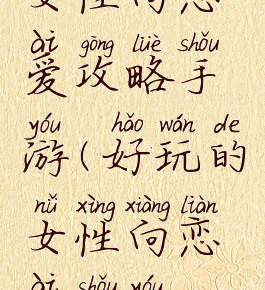 女性向恋
ài gōng lüè shǒu
爱攻略手
yóu hǎo wán de
游(好玩的
nǚ xìng xiàng liàn
女性向恋
ài shǒu yóu